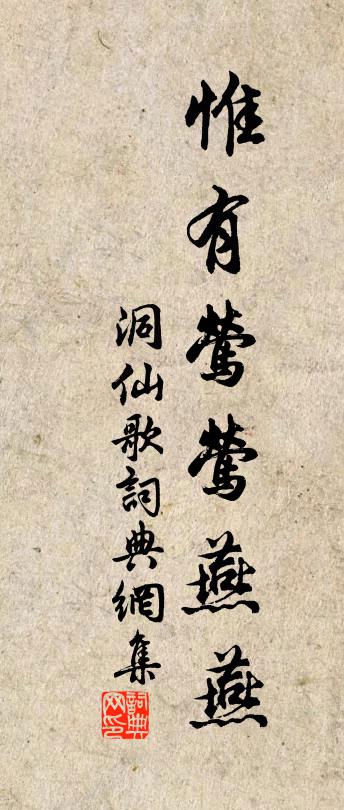 惟有鶯鶯燕燕
洞仙歌詞典網集
詞典網印